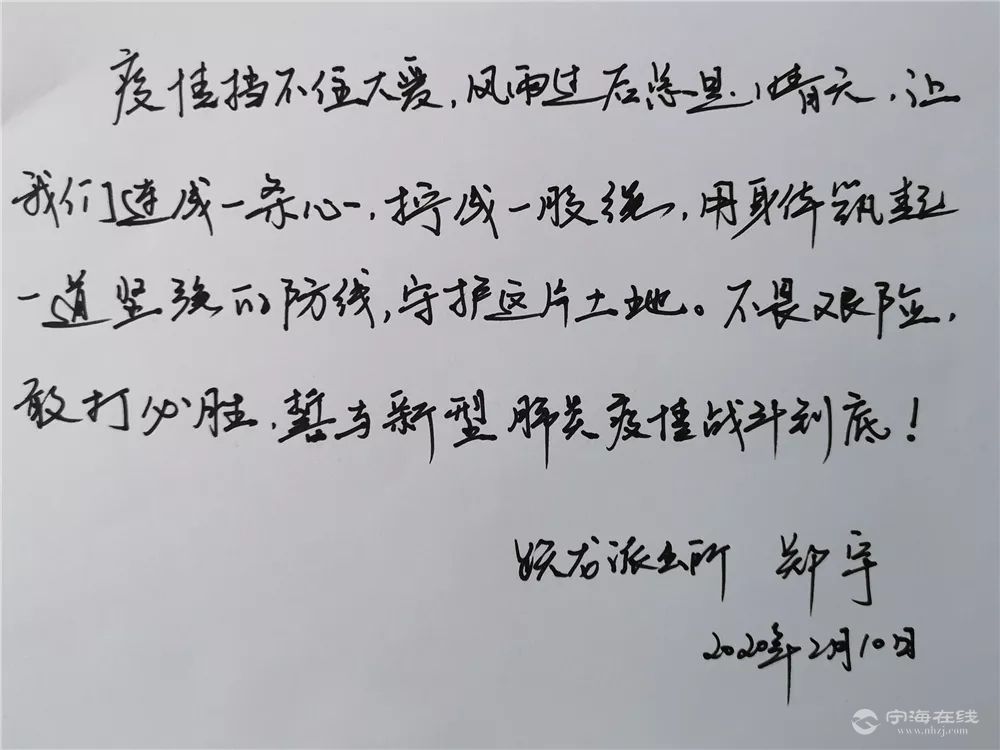 疫情挡不住大爱,风雨过后总是晴天,让
我们连成一条心,拧成一股绳,用身体筑起
一道坚强的防线,守护这片土地。不畏艰险,
敢打必胜,誓与新型肺炎疫情战斗到底!
跃龙派出所 郑宇
2020年2月10日
宁海在线
www.nhzj.com